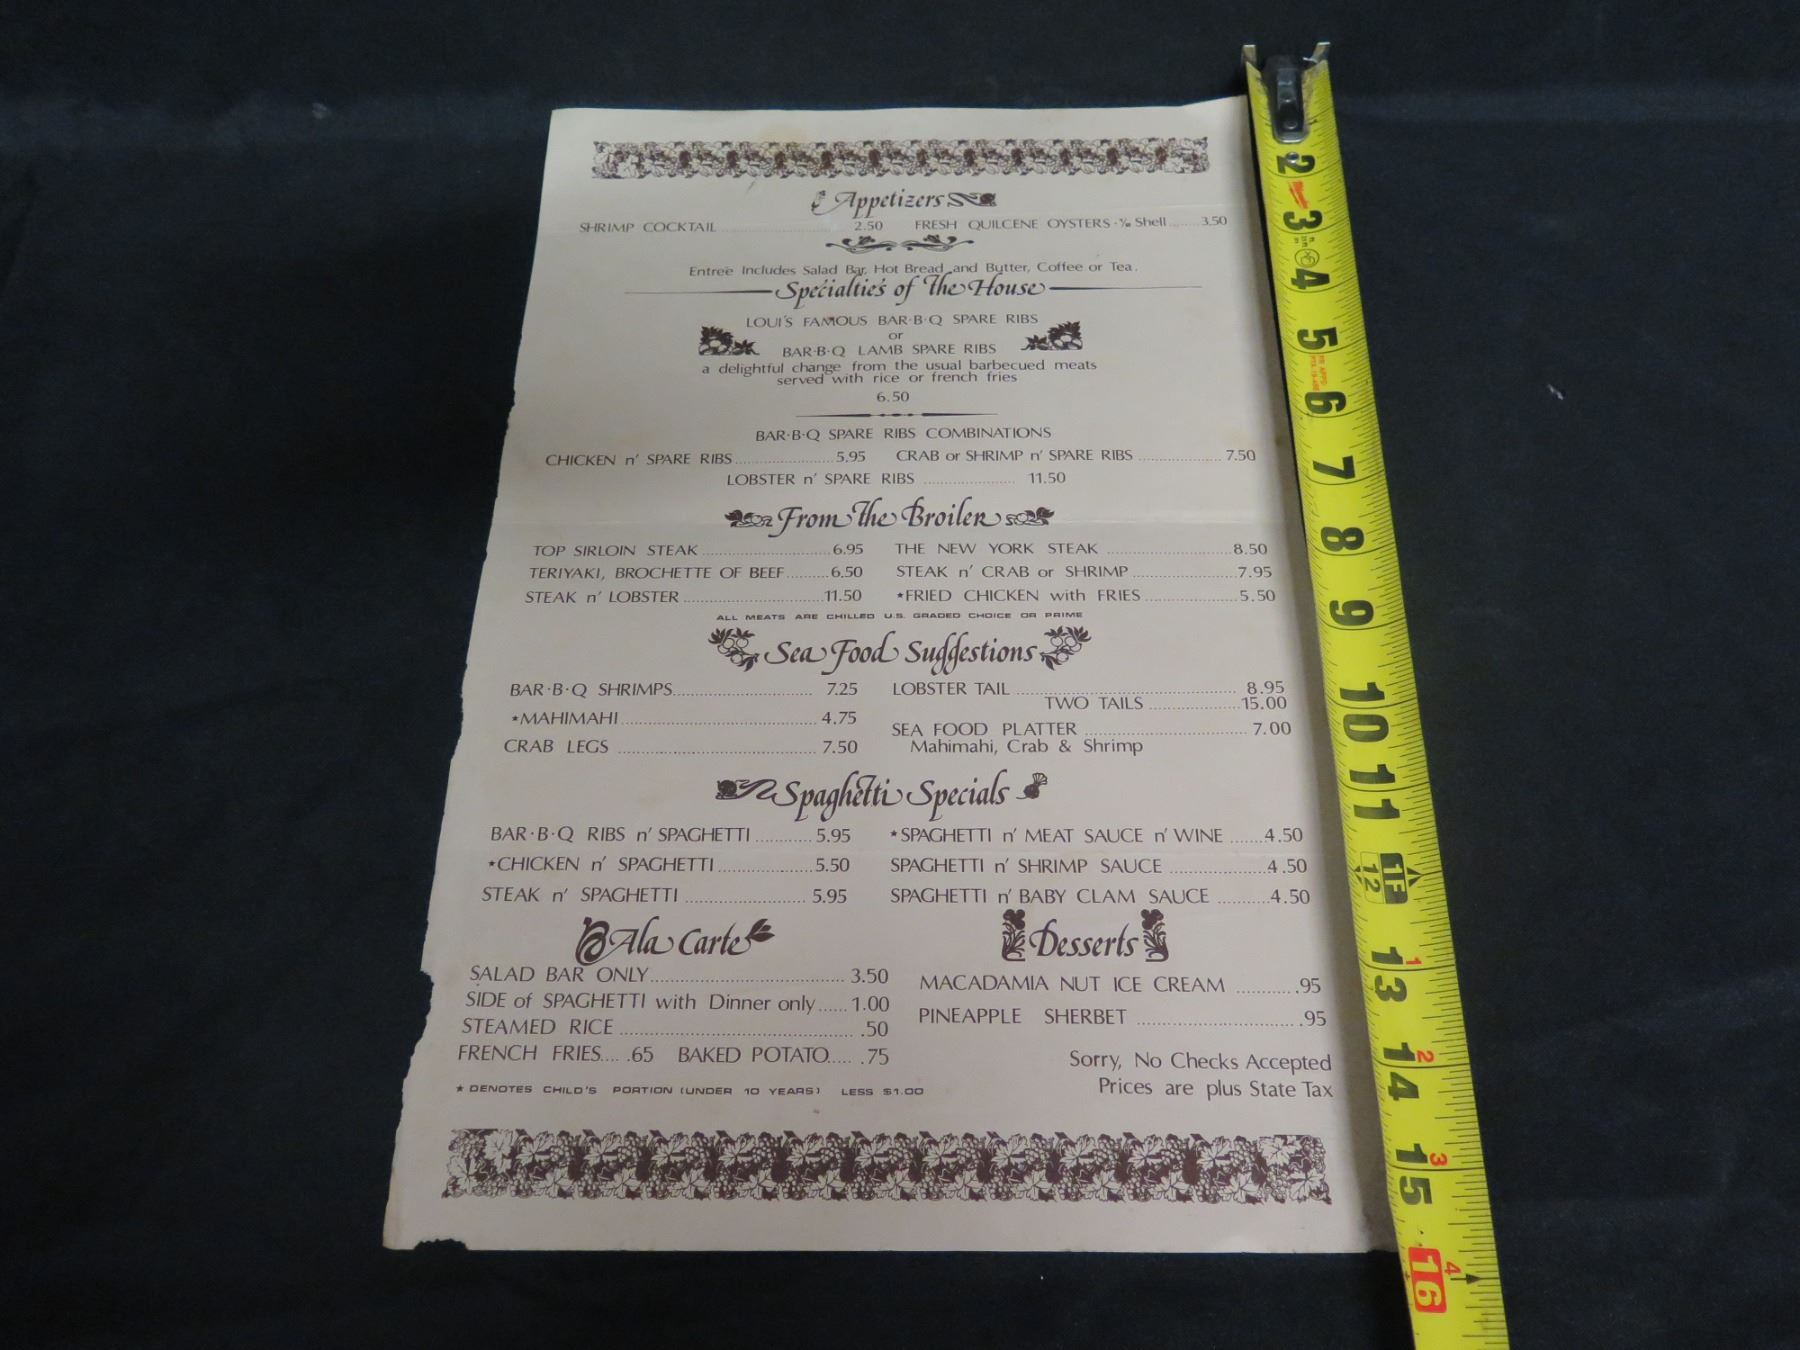 Appetizers
SHRIMP COCKTAIL 2.50 FRESH QUILCENE OYSTERS - Shell 3.50
Entree Includes Salad Bar, Hot Bread and Butter, Coffee or Tea.
Specialtie's of The House
LOUI'S FAMOUS BAR·B·Q SPARE RIBS
or
BAR·B·Q LAMB SPARE RIBS
a delightful change from the usual barbecued meats
served with rice or french fries
6.50
BAR·B·Q SPARE RIBS COMBINATIONS
CHICKEN n' SPARE RIBS 5.95 CRAB or SHRIMP n' SPARE RIBS 7.50
LOBSTER n' SPARE RIBS 11.50
From The Broiler
TOP SIRLOIN STEAK 6.95 THE NEW YORK STEAK 8.50
TERIYAKI, BROCHETTE OF BEEF 6.50 STEAK n' CRAB or SHRIMP 7.95
STEAK n' LOBSTER 11.50 *FRIED CHICKEN with FRIES 5.50
ALL MEATS ARE CHILLED U.S. GRADED CHOICE OR PRIME
Sea Food Suggestions
BAR·B·Q SHRIMPS 7.25 LOBSTER TAIL 8.95
TWO TAILS 15.00
*MAHIMAHI 4.75 SEA FOOD PLATTER 7.00
CRAB LEGS 7.50 Mahimahi, Crab & Shrimp
Spaghetti Specials
BAR·B·Q RIBS n' SPAGHETTI 5.95 *SPAGHETTI n' MEAT SAUCE n' WINE 4.50
*CHICKEN n' SPAGHETTI 5.50 SPAGHETTI n' SHRIMP SAUCE 4.50
STEAK n' SPAGHETTI 5.95 SPAGHETTI n' BABY CLAM SAUCE 4.50
Ala Carte
SALAD BAR ONLY 3.50
SIDE of SPAGHETTI with Dinner only 1.00
STEAMED RICE .50
FRENCH FRIES .65 BAKED POTATO .75
* DENOTES CHILD'S PORTION (UNDER 10 YEARS) LESS $1.00
Desserts
MACADAMIA NUT ICE CREAM .95
PINEAPPLE SHERBET .95
Sorry, No Checks Accepted
Prices are plus State Tax
2
3
4
5
6
7
8
9
10
11
1F
12
13 1
14 2
15 3
16 4